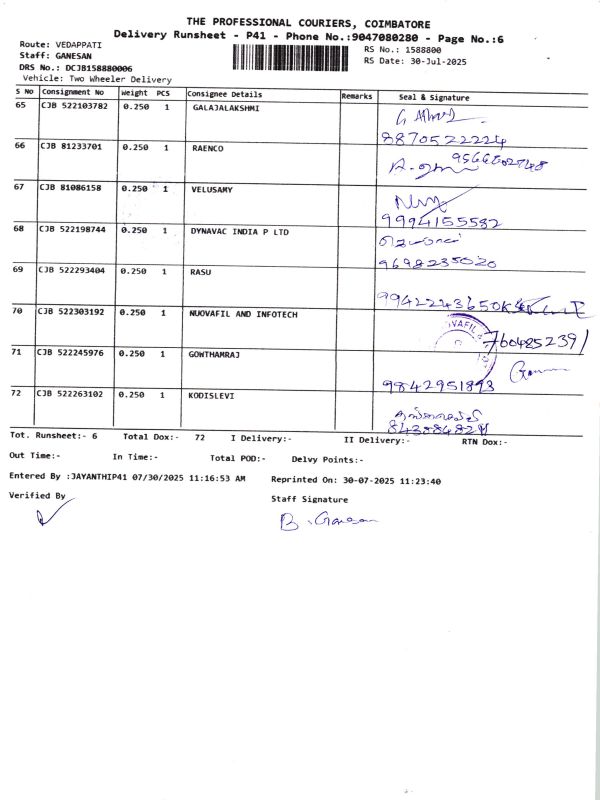 THE PROFESSIONAL COURIERS, COIMBATORE
Delivery Runsheet - P41 - Phone No.:9047080280 - Page No.:6
Route: VEDAPPATI
RS No.: 1588800
Staff: GANESAN
RS Date: 30-Jul-2025
DRS No.: DCJB158880006
Vehicle: Two Wheeler Delivery
S No Consignment No Weight PCS Consignee Details Remarks Seal & Signature
65 CJB 522103782 0.250 1 GALAJALAKSHMI
8870522224
66 CJB 81233701 0.250 1 RAENCO
67 CJB 81086158 0.250 1 VELUSAMY
9994155532
68 CJB 522198744 0.250 1 DYNAVAC INDIA P LTD
9698235020
69 CJB 522293404 0.250 1 RASU
9942224365
70 CJB 522303192 0.250 1 NUOVAFIL AND INFOTECH
7604852391
71 CJB 522245976 0.250 1 GOWTHAMRAJ
9842951893
72 CJB 522263102 0.250 1 KODISLEVI
Tot. Runsheet:- 6 Total Dox:- 72 I Delivery:- II Delivery:- RTN Dox:-
Out Time:- In Time:- Total POD:- Delvy Points:-
Entered By :JAYANTHIP41 07/30/2025 11:16:53 AM Reprinted On: 30-07-2025 11:23:40
Verified By Staff Signature
B. Ganesan